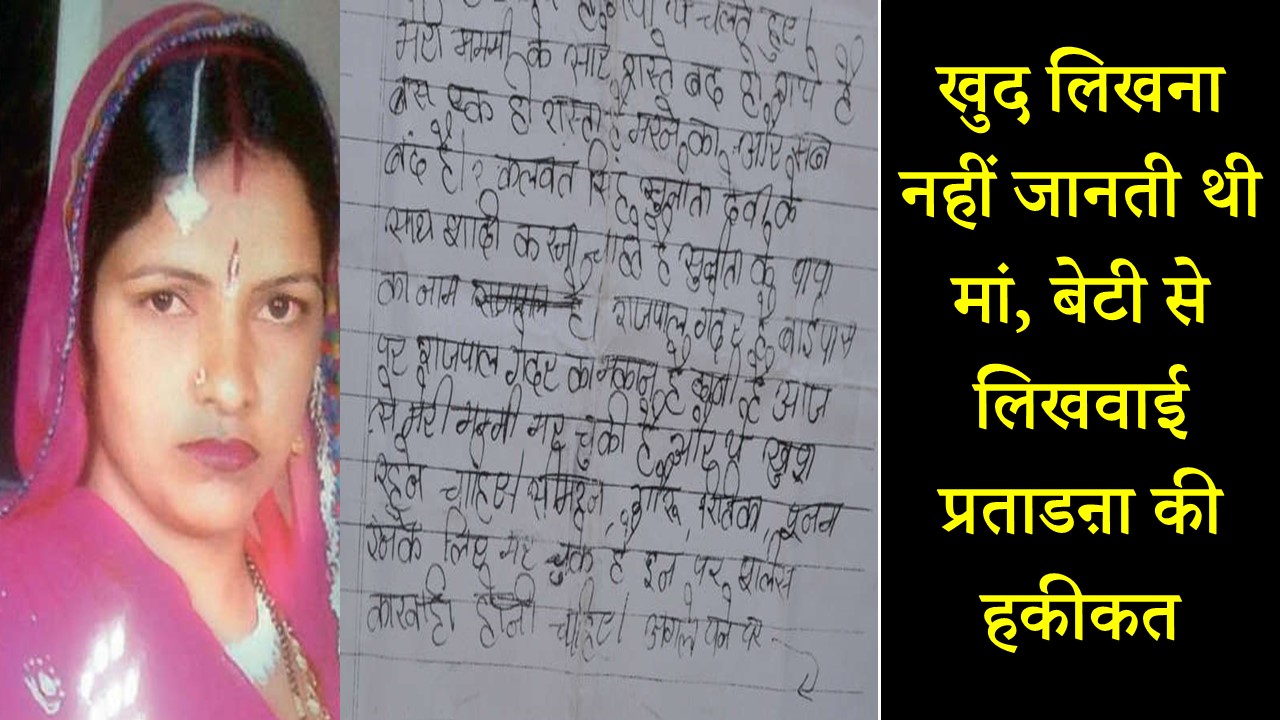 चलते हुए।
मेरी मममी के सारे रास्ते बद हो गये है
बास एक ही रास्ता है मरने का और सब
बंद है। कलवत सिंह सुनीता देवी के
साथ शादी करना चाते है सुनीता के पापा
का नाम है। राजपाल गेदर है बाईपास
पर राजपाल गेदर का मकान है आज
से मेरी मममी मर चुकी है और ये खुश
रहने चाहिए
इनके लिए मर चुके है इन पर
कारवाही होनी चाहिए। अगले पने पर
खुद लिखना
नहीं जानती थी
मां, बेटी से
लिखवाई
प्रताडऩा की
हकीकत